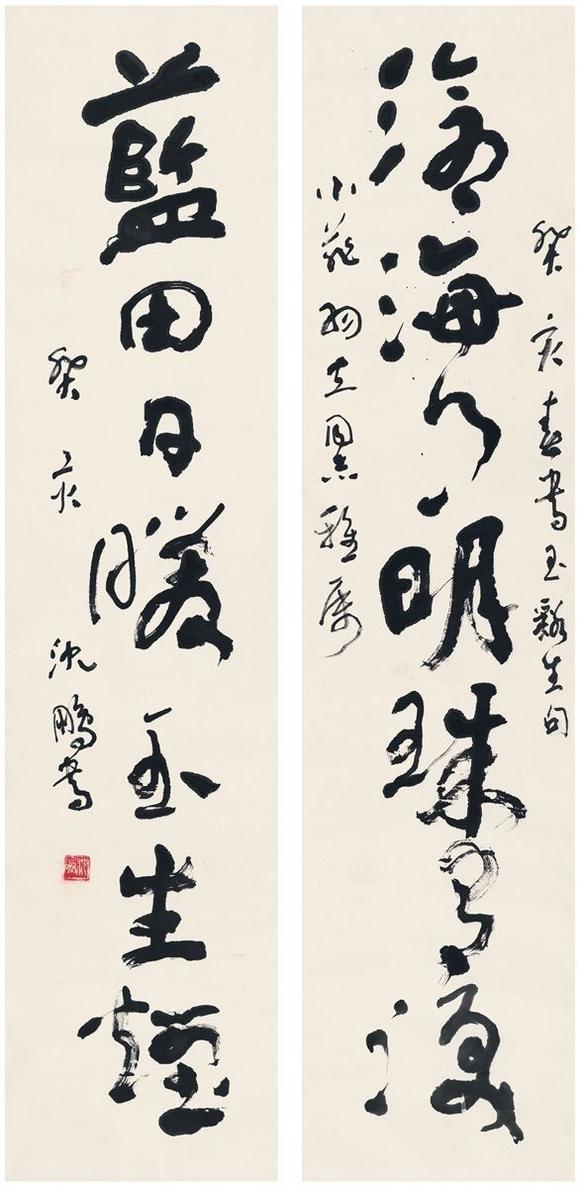 癸亥春書玉谿生句
滄海月明珠有淚
同志雅屬
藍田日暖玉生煙
癸亥 沈鵬書